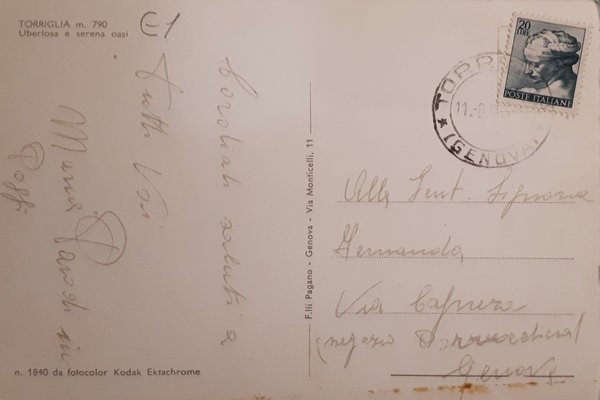 TORRIGLIA m. 790
Ubertosa e serena oasi
Cordiali saluti a
tutti Voi
Maria Parodi in
n. 1840 da fotocolor Kodak Ektachrome
F.lli Pagano - Genova - Via Monticelli, 11
20
LIRE
POSTE ITALIANE
TORR
11.-8.
(GENOVA)
Alla Gent. Signora
Fernanda
Via Caprera
(negozio
Genova